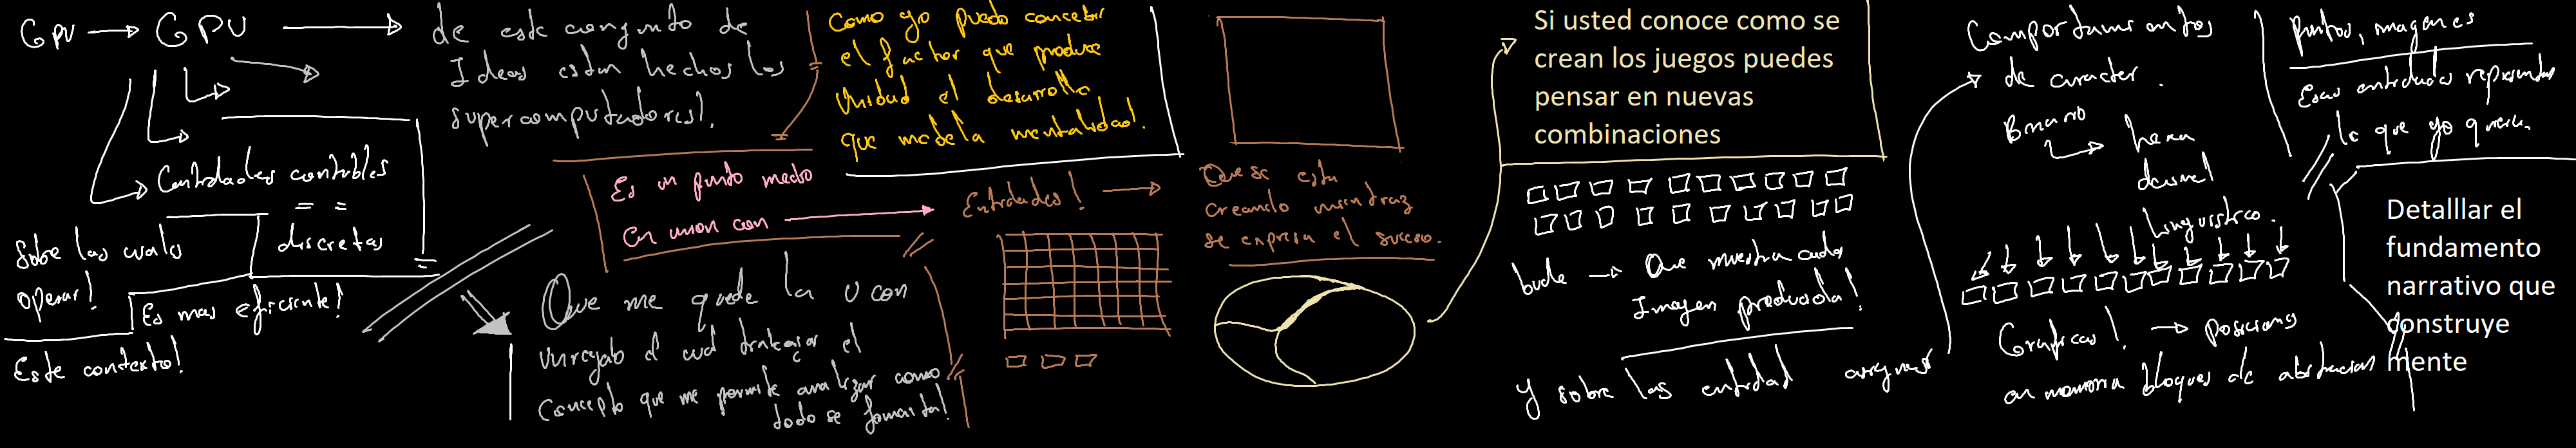 Gpu → GPU →
de este conjunto de
Ideas estan hechos los
supercomputadores!.
Cantidades contables
= =
discretas
Sobre las cuales
operar!
Es mas eficiente!
Este contexto!
Como yo puedo concebir
el factor que produce
Unidad el desarrollo
que modela mentalidad!.
Es un punto medio
en union con
Entidades! →
Que me quede la U con
el cual trabajar el
Concepto que me permite analizar como
todo se fomenta!
Que se esta
creando mientraz
se expresa el suceso.
Si usted conoce como se
crean los juegos puedes
pensar en nuevas
combinaciones
bucle → Que muestra cada
Imagen producida!
Y sobre las entidad
Comportamientos
de caracter.
Binario
hexa
decimal
Linguistico.
Graficas! → posiciona
en memoria bloques de abstracion
puntos, imagenes
Esas entidades representan
lo que yo quiera.
Detalllar el
fundamento
narrativo que
construye
mente